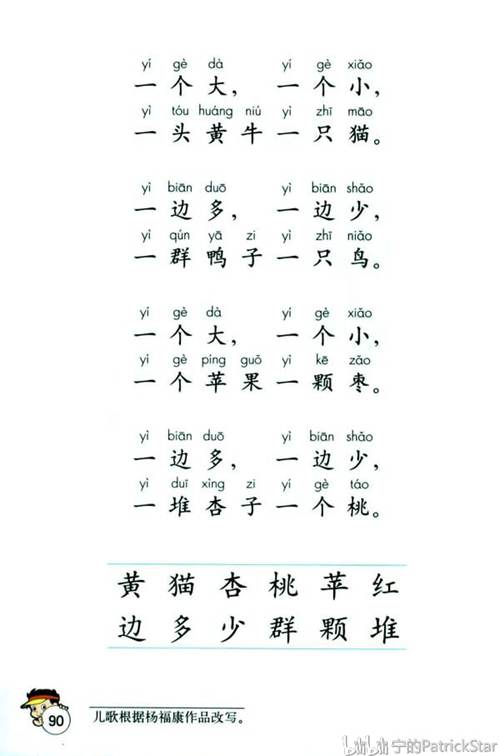 yí gè dà yí gè xiǎo
一个大， 一个小，
yì tóu huáng niú yì zhī māo
一头黄牛一只猫。
yì biān duō yì biān shǎo
一边多， 一边少，
yì qún yā zi yì zhī niǎo
一群鸭子一只鸟。
yí gè dà yí gè xiǎo
一个大， 一个小，
yí gè píng guǒ yì kē zǎo
一个苹果一颗枣。
yì biān duō yì biān shǎo
一边多， 一边少，
yì duī xìng zi yí gè táo
一堆杏子一个桃。
黄猫杏桃苹红
边多少群颗堆
90 儿歌根据杨福康作品改写。
bilibili 宁的PatrickStar